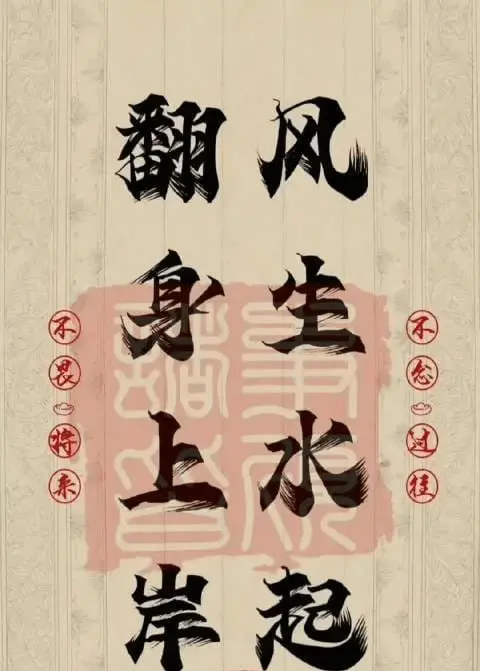 风生水起
翻身上岸
不念过往
不畏将来